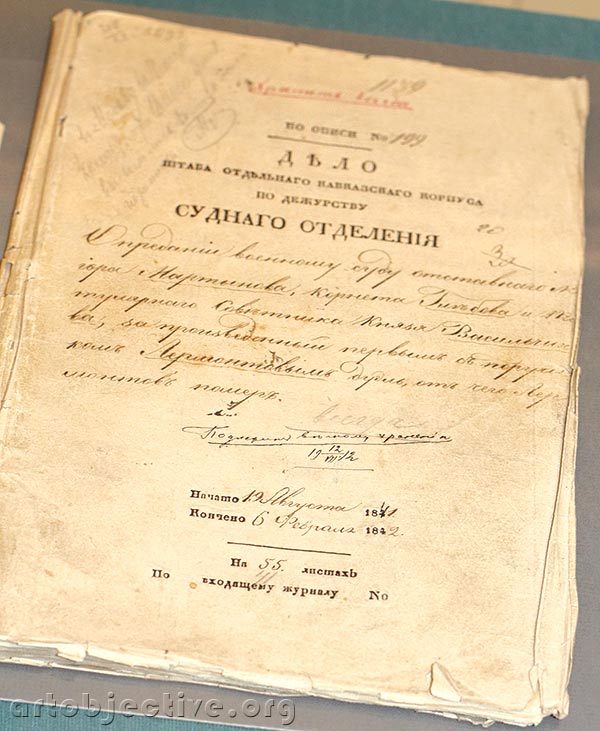 1139
Хранить вечно
ПО ОПИСИ № 199
ДѢЛО
ШТАБА ОТДѢЛЬНАГО КАВКАЗСКАГО КОРПУСА
ПО ДЕЖУРСТВУ
СУДНАГО ОТДЕЛЕНІЯ
О преданіи военному суду отставнаго Ма-
іора Мартынова, Корнета Глѣбова и Ти-
тулярнаго Совѣтника Князя Васильчико-
ва, за произведенный первымъ съ поручи-
комъ Лермонтовымъ дуэль, отъ чего Лер-
монтовъ померъ.
Подлежит вѣчному храненію
19 12/VIII 12
Начато 12 Августа 1841
Кончено 6 Февраля 1842.
На 55. листахъ
По входящему журналу №
artobjective.org